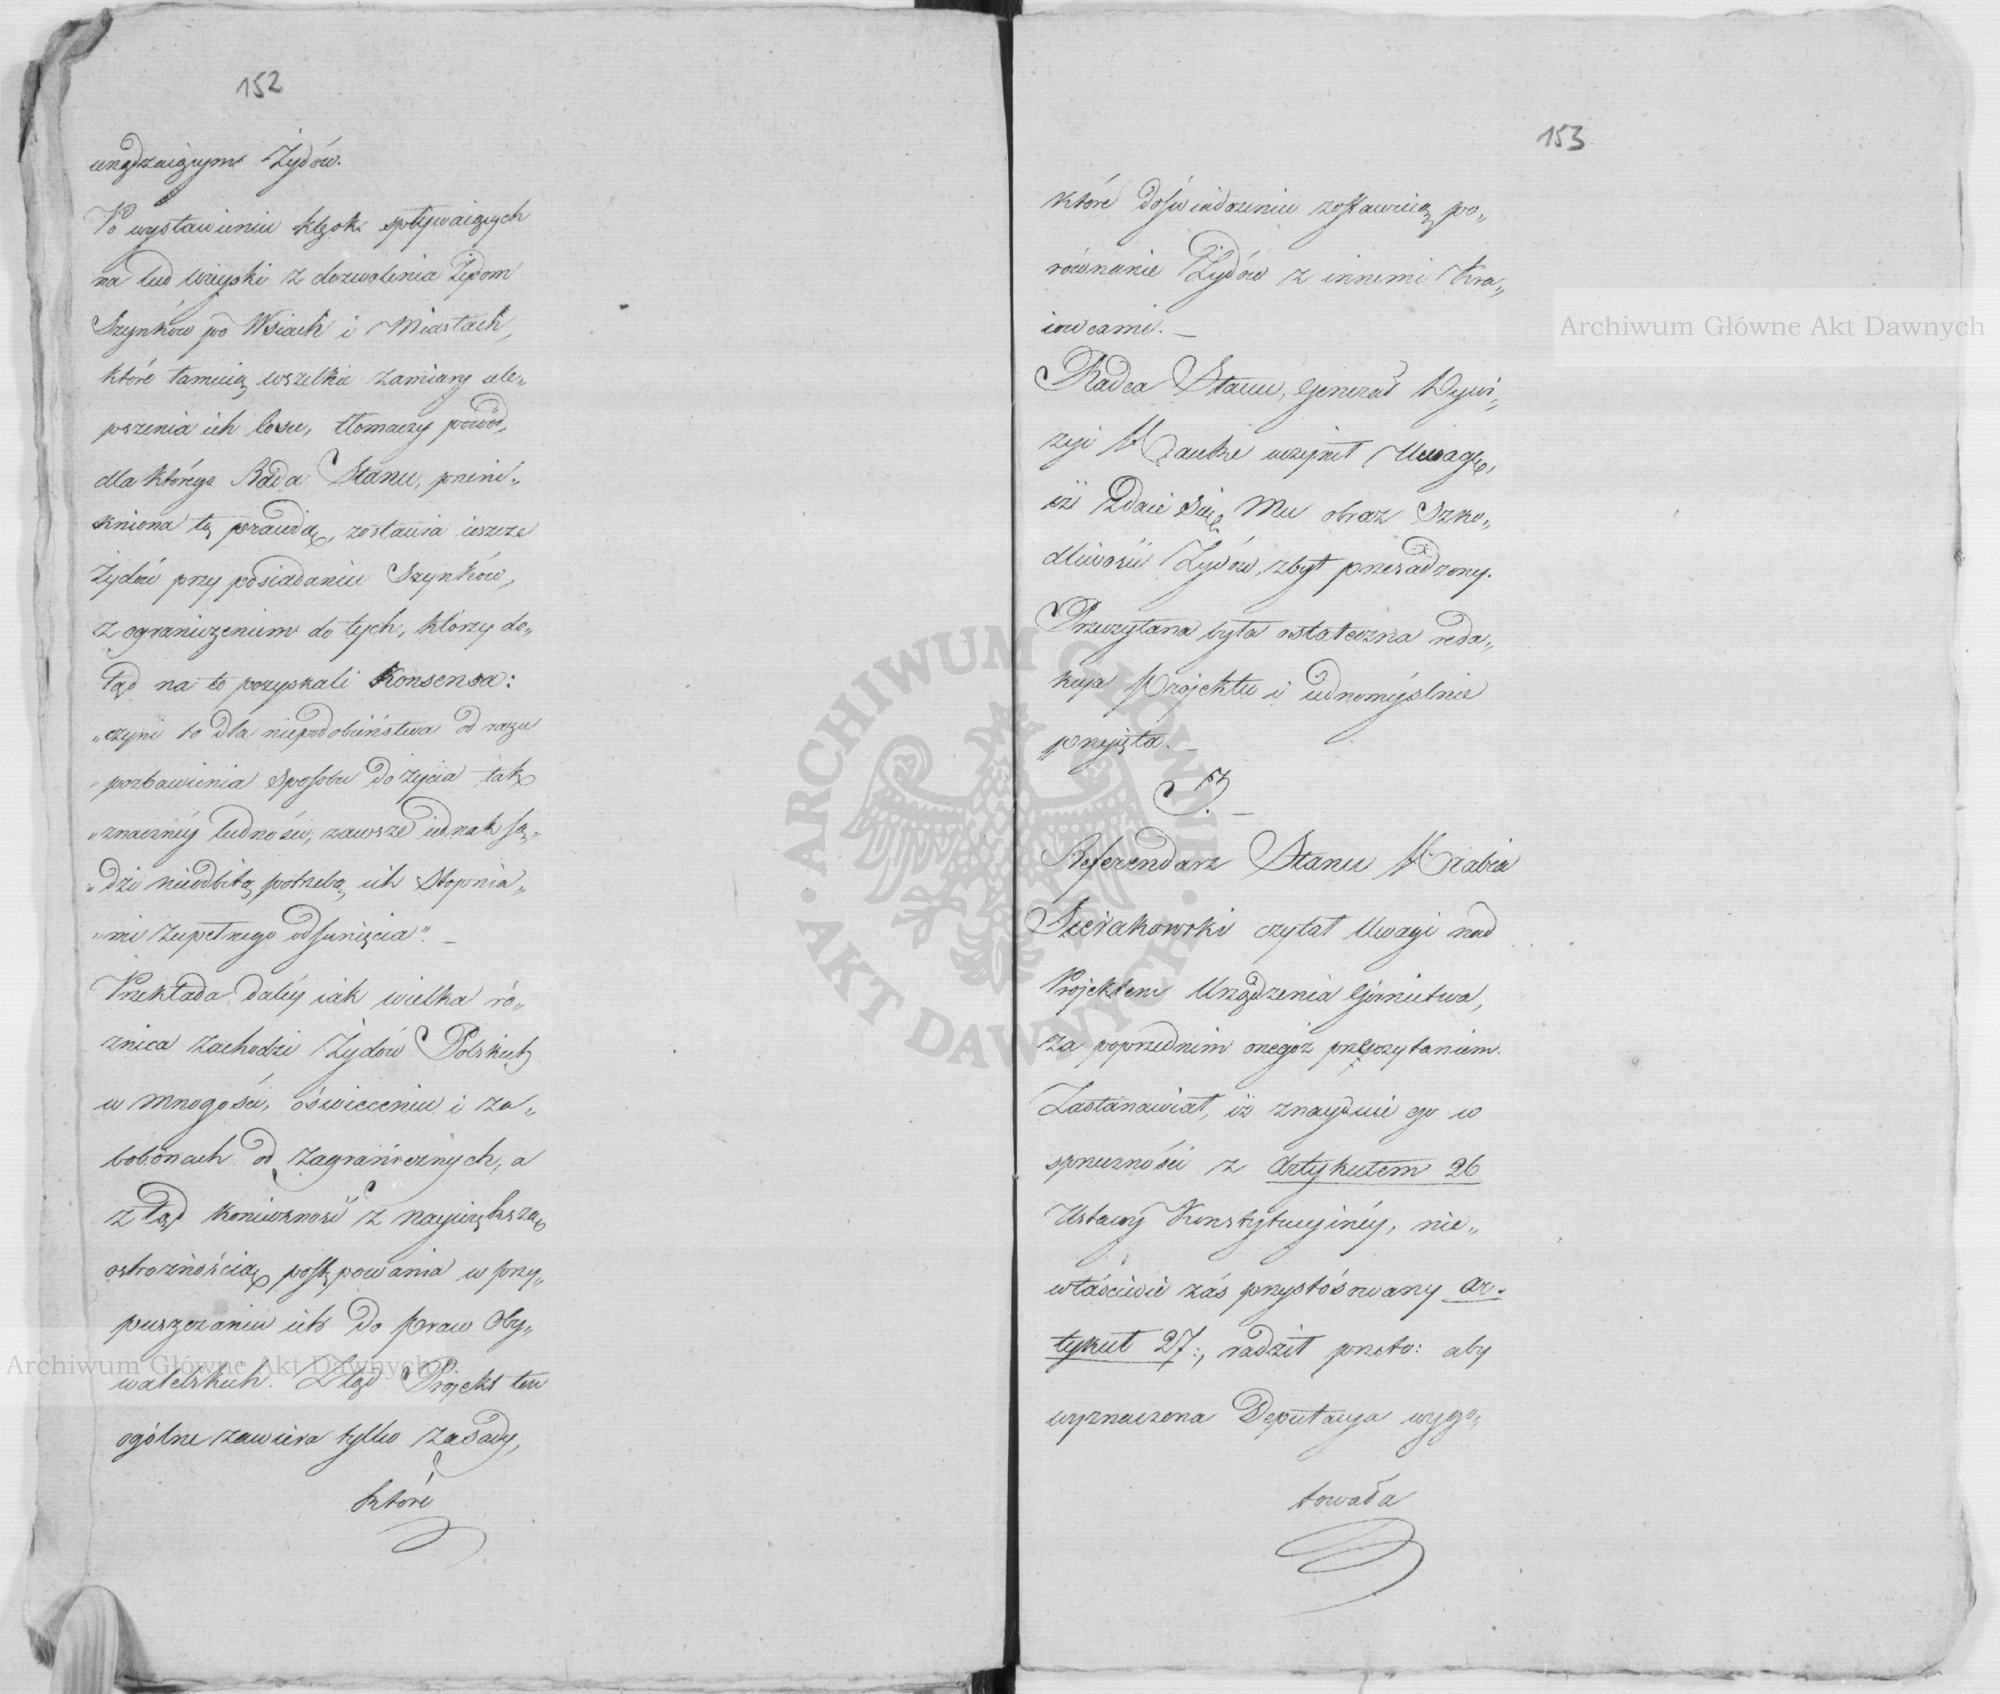 152
urządzaiącym Żydów.
Po wystawieniu klęsk spływaiących
na lud wieyski z dozwolenia Żydom
Szynków po Wsiach i Miastach,
które tamuią wszelkie zamiary ule„
pszenia ich losu, tłomaczy powód,
dla którego Rada Stanu, przeni„
kniona tą prawdą, zostawia ieszcze
Żydów przy posiadaniu Szynków,
z ograniczeniem do tych, którzy do„
tąd na to pozyskali Konsensa:
„czyni to dla niepodobieństwa od razu
„pozbawienia sposobu do życia tak
„znaczney ludności, zawsze iednak są„
„dzi nieodbitą potrzebą ich stopnia„
„mi zupełnego odsunięcia". —
Przekłada daley iak wielka ró„
żnica zachodzi Żydów Polskich
w mnogości, oświeceniu i za„
bobonach od zagranicznych, a
z tąd konieczność z naywiększą
ostrożnością postępowania w przy„
puszczaniu ich do praw Oby„
watelskich. Ztąd Projekt ten
ogólne zawiera tylko zasady,
które
153
które doświadczeniu zostawuią po„
równanie Żydów z innemi Kra„
iowcami. —
Radca Stanu, Generał Dywi„
zyi Hauke uczynił Uwagę,
iż zdaie się Mu obraz szko„
dliwości Żydów, zbyt przesadzony.
Przeczytana była ostateczna reda„
kcya Projektu i iednomyślnie
przyięta. —
7. —
Referendarz Stanu Hrabia
Sierakowski czytał Uwagi nad
Projektem Urządzenia Górnictwa,
za poprzednim onegoż przeczytaniem.
Zastanawiał, iż znayduie go w
sprzeczności z Artykułem 26
Ustawy Konstytucyiney, nie„
właściwie zaś przystósowany Ar„
tykuł 27:, radził przeto: aby
wyznaczona Deputacya wygo„
towała
ARCHIWUM GŁÓWNE AKT DAWNYCH
Archiwum Główne Akt Dawnych
Archiwum Główne Akt Dawnych